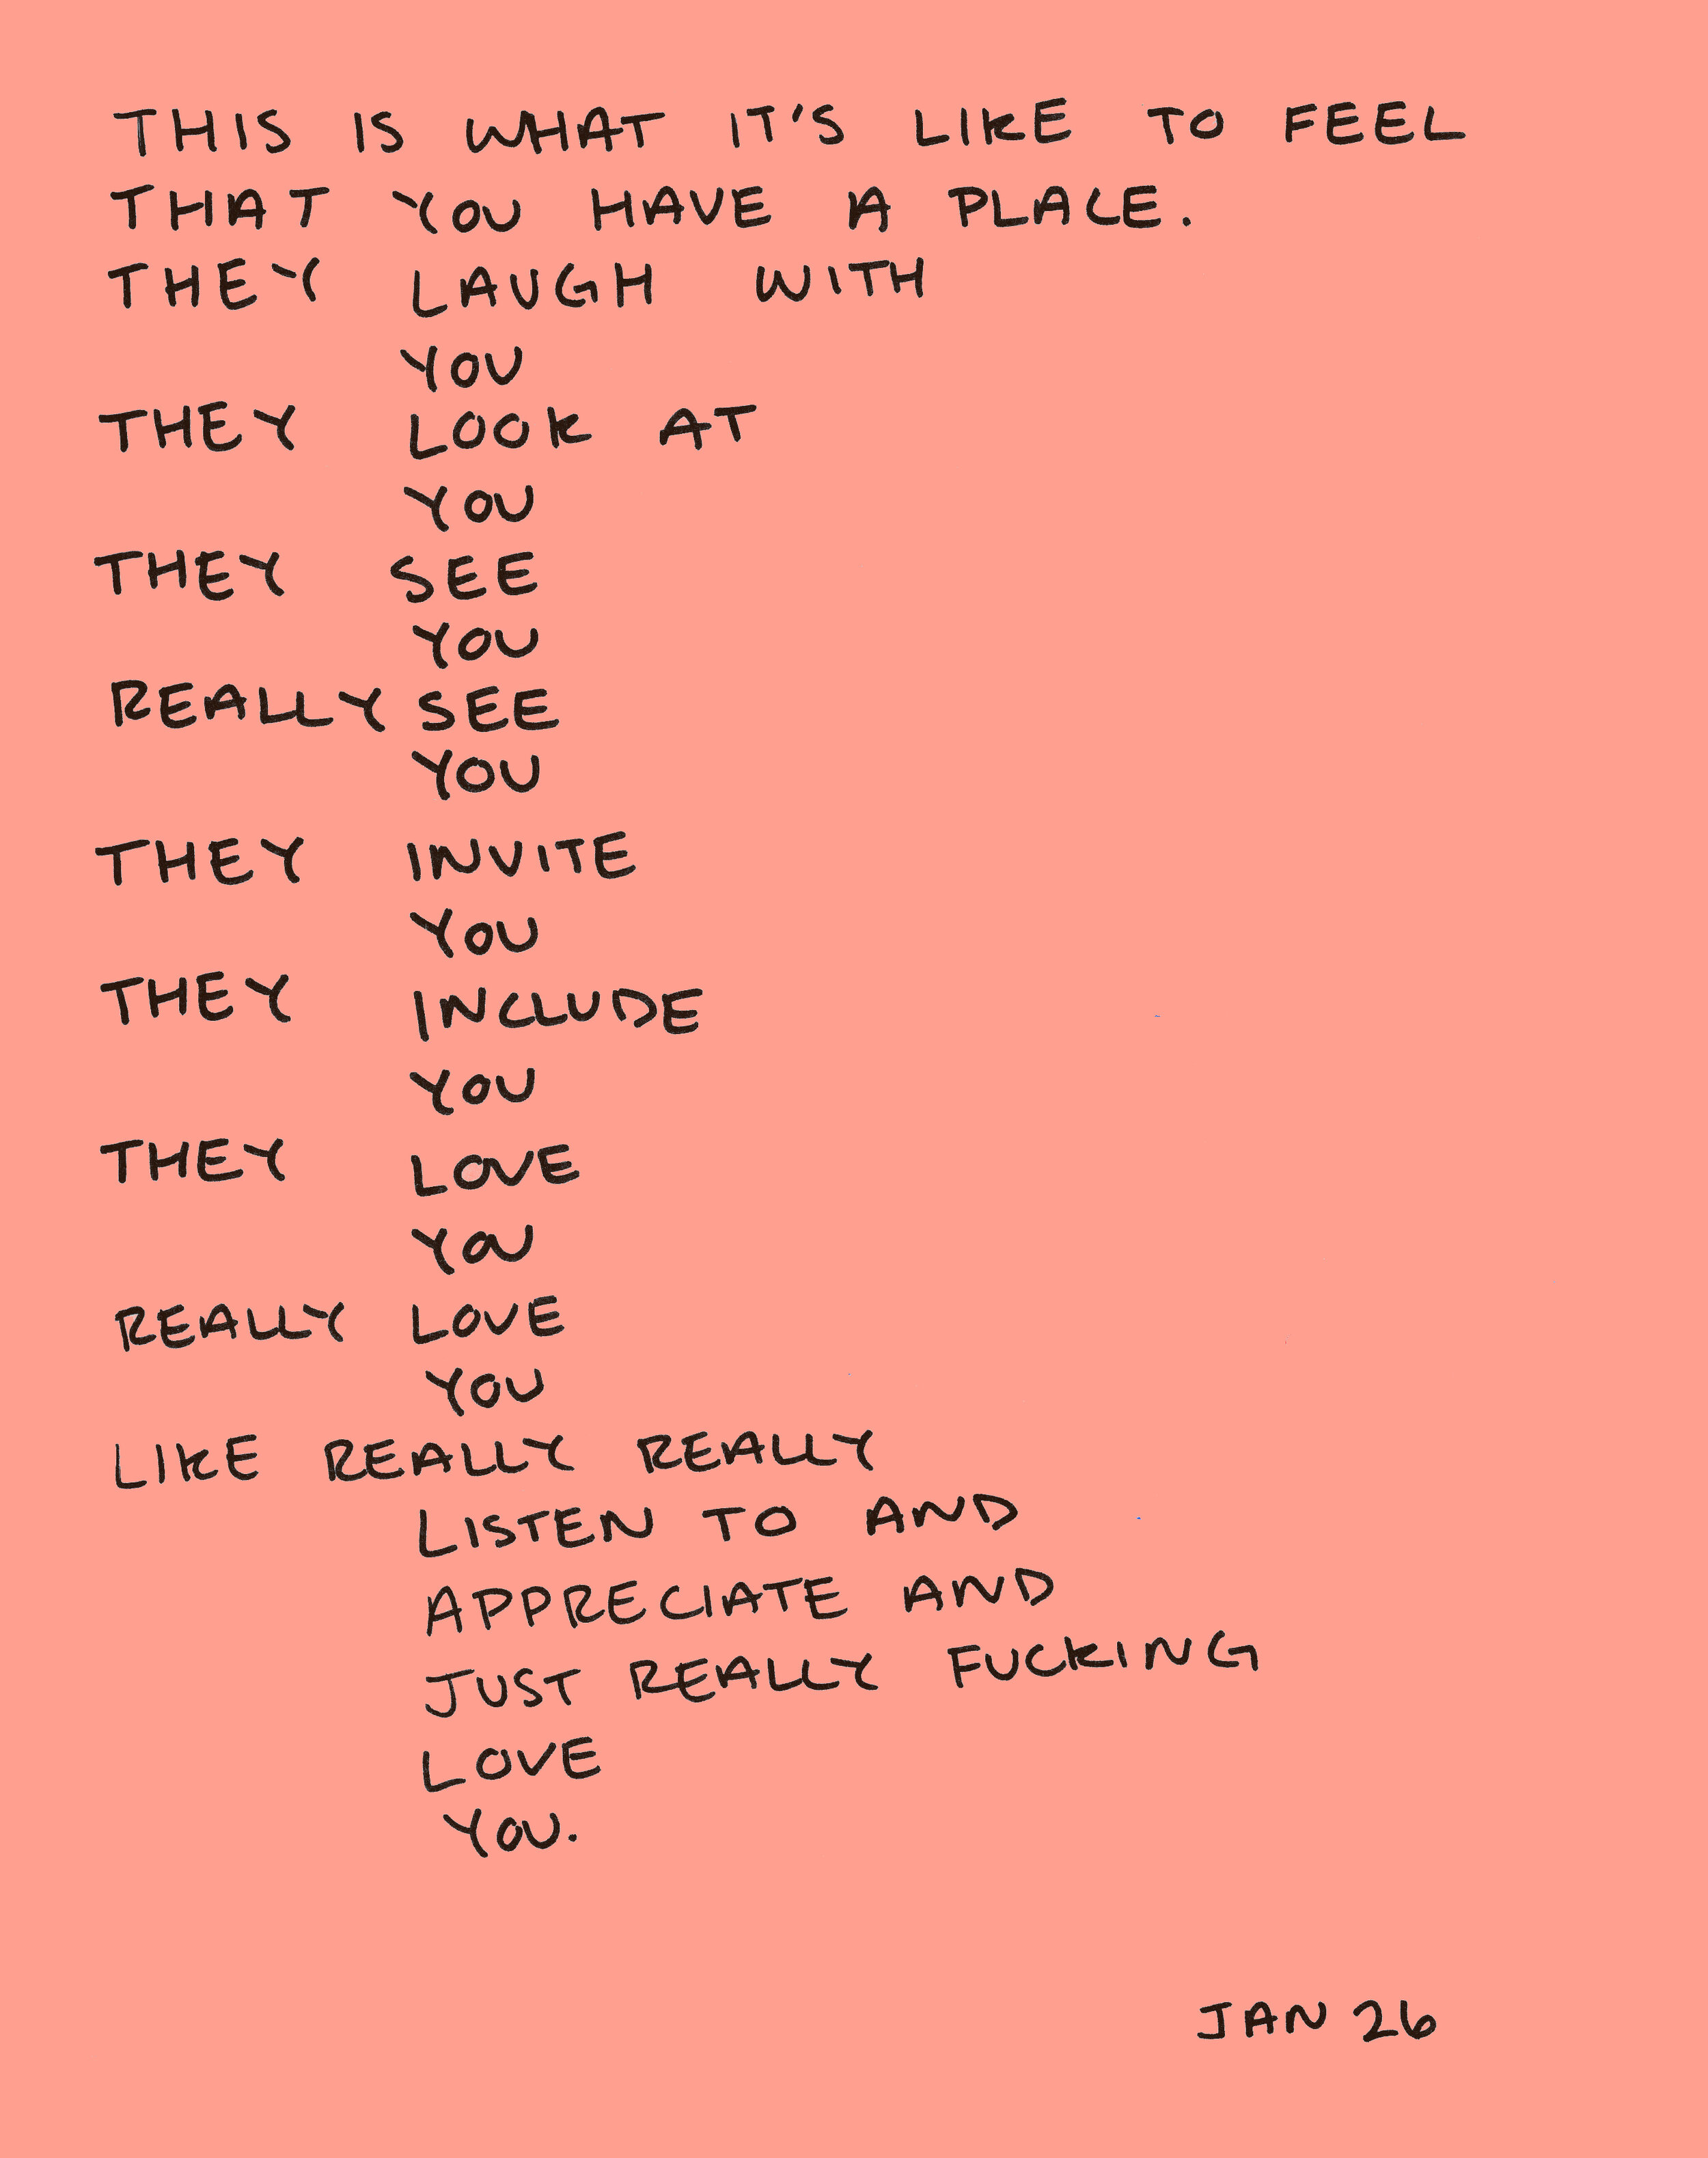 THIS IS WHAT IT'S LIKE TO FEEL
THAT YOU HAVE A PLACE.
THEY LAUGH WITH
YOU
THEY LOOK AT
YOU
THEY SEE
YOU
REALLY SEE
YOU
THEY INVITE
YOU
THEY INCLUDE
YOU
THEY LOVE
YOU
REALLY LOVE
YOU
LIKE REALLY REALLY
LISTEN TO AND
APPRECIATE AND
JUST REALLY FUCKING
LOVE
YOU.
JAN 26